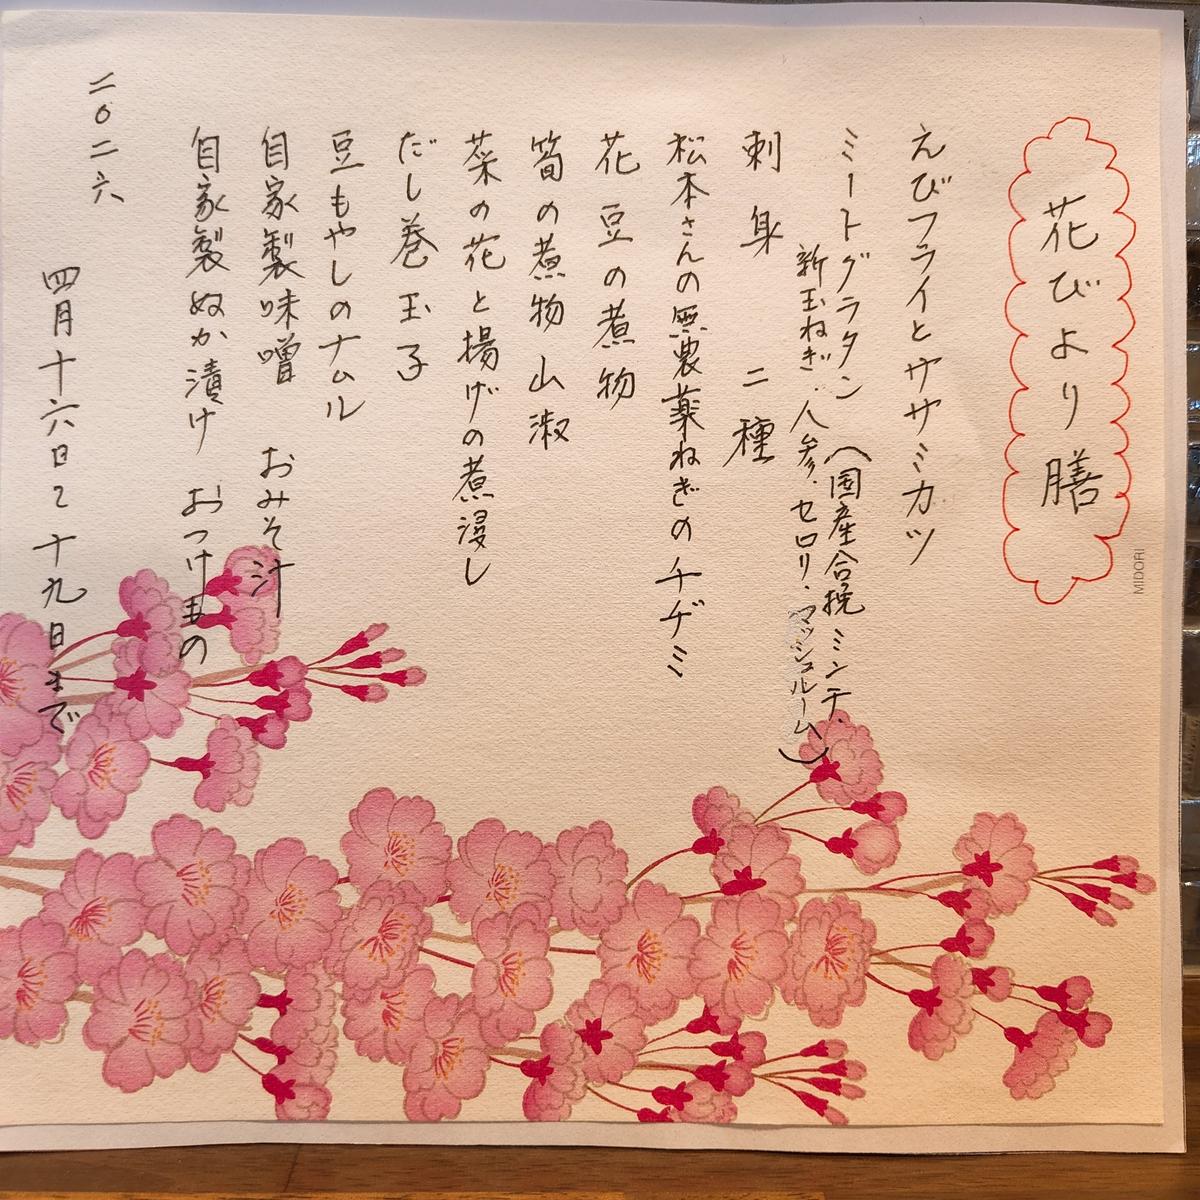 花びより膳
えびフライとササミカツ
ミートグラタン（国産合挽ミンチ、
新玉ねぎ、人参、セロリ、マッシュルーム）
刺身二種
松本さんの無農薬ねぎのチヂミ
花豆の煮物
筍の煮物山淑
菜の花と揚げの煮浸し
だし巻玉子
豆もやしのナムル
自家製味噌 おみそ汁
自家製ぬか漬け おつけもの
二〇二六
四月十六日〜十九日まで
MIDORI